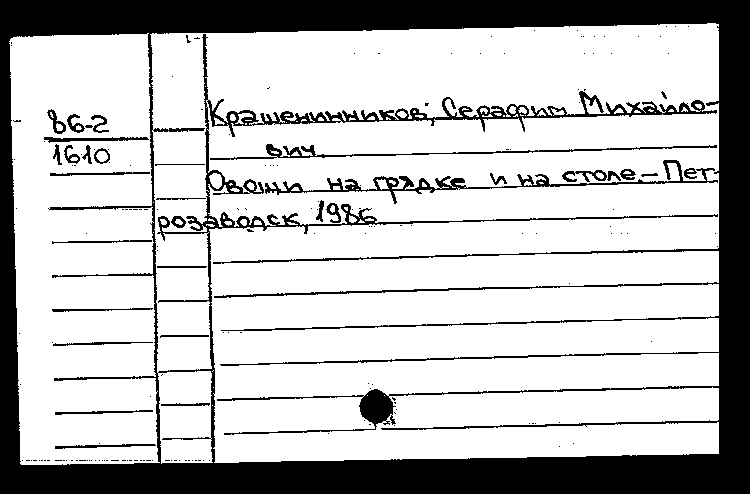 86-2
1610
Крашенинников, Серафим Михайло-
вич.
Овощи на грядке и на столе. – Пет-
розаводск, 1986